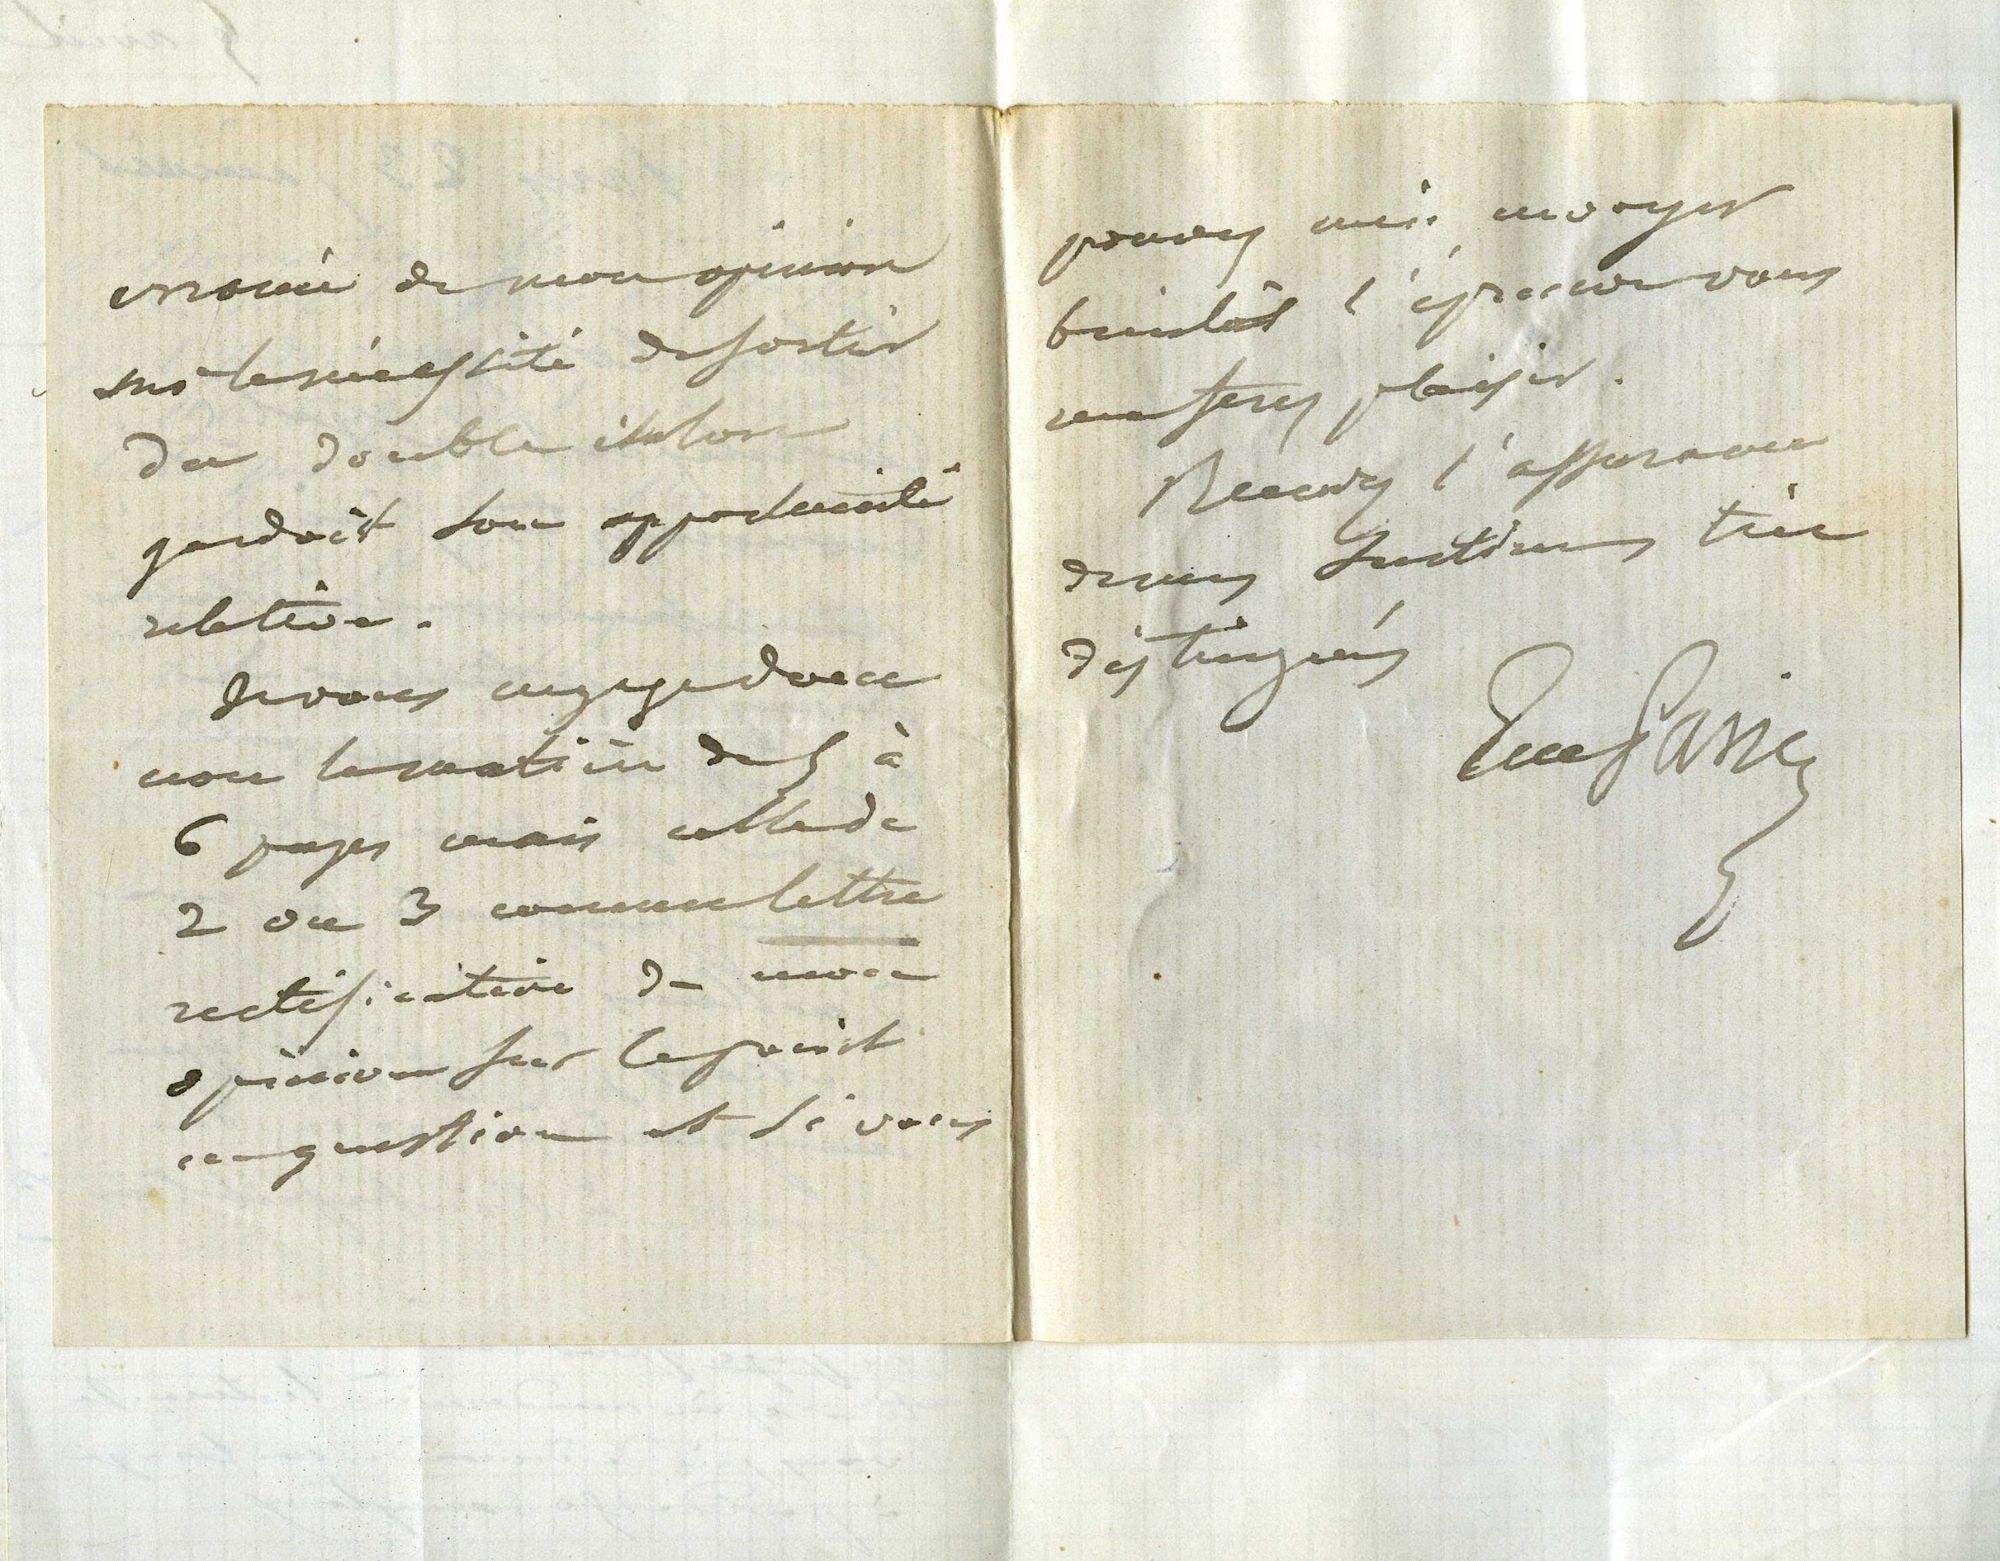 erronée de mon opinion
sur la nécessité de sortir
du double étalon
gardait son opportunité
relative.
Je vous engage donc
non la matière de 5 à
6 pages mais celle de
2 ou 3 comme lettre
rectificative de mon
opinion sur le point
en question et si vous
pouvez m'en envoyer
bientôt l'épreuve vous
me ferez plaisir.
Recevez l'assurance
de mes sentiments très
distingués